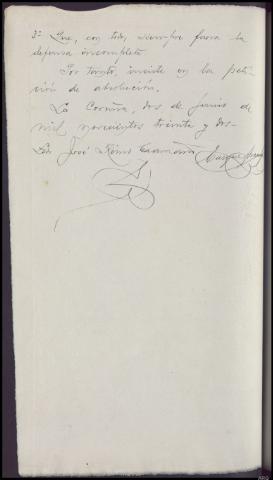 3º Que, con todo, siempre fuera la
defensa incompleta.
Por tanto, insiste en la peti-
ción de absolución.
La Coruña, dos de junio de
mil novecientos treinta y dos-
Ldo José Reino Caamaño